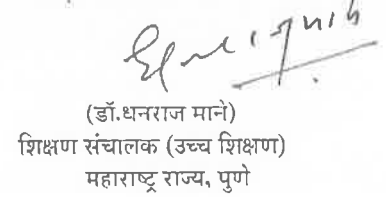 (डॉ.धनराज माने)
शिक्षण संचालक (उच्च शिक्षण)
महाराष्ट्र राज्य, पुणे